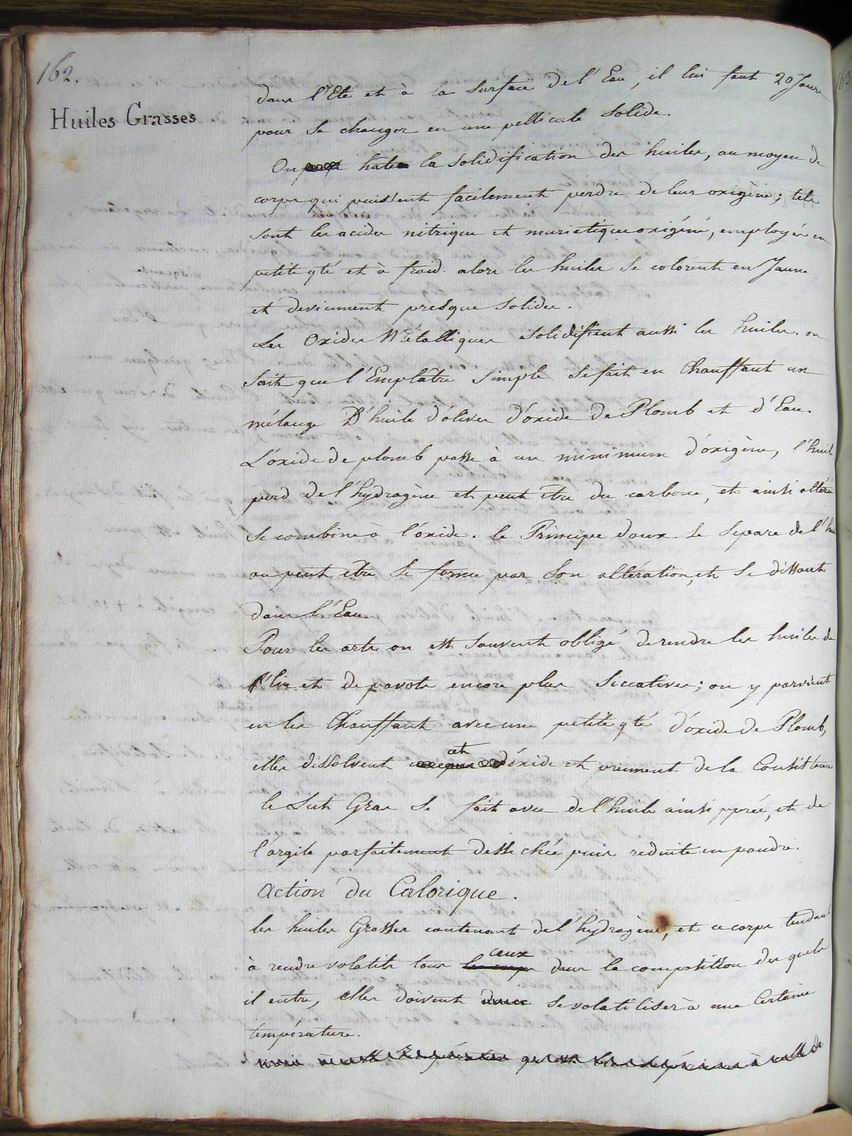 162.
Huiles Grasses
dans l'Eté et à la surface de l'Eau, il lui faut 20 Jours
pour se changer en une pellicule solide.
On hate la solidification des huiles, au moyen de
corps qui puissent facilement perdre de leur oxigène; tels
sont les acides nitrique et muriatique oxigéné, employés en
petite qté et à froid. alors les huiles se colorent en Jaune
et deviennent presque solides.
Les Oxides Métalliques solidifient aussi les huiles. on
sait que l'Emplatre simple se fait en Chauffant un
mélange D'huile d'olives d'oxide de Plomb et d'Eau.
L'oxide de plomb passe à un minimum d'oxigène, l'huile
perd de l'hydrogène et peut être du carbone, et ainsi altérée
se combine à l'oxide. le Principe doux se separe de l'hu
ou peut être se forme par son altération, et se dissout
dans l'Eau.
Pour les arts on est souvent obligé de rendre les huiles de
lin et de pavots encore plus siccatives; on y parvient
en les Chauffant avec une petite qté d'oxide de Plomb,
elles dissolvent cet oxide et prennent de la Consistance
le Lut Gras se fait avec de l'huile ainsi pprée, et de
l'argile parfaitement dessechée puis reduite en poudre.
Action du Calorique.
les huiles Grasses contenant de l'hydrogène, et ce corps tendant
à rendre volatils tous ceux dans la composition des quels
il entre, elles doivent se volatiliser à une Certaine
température.